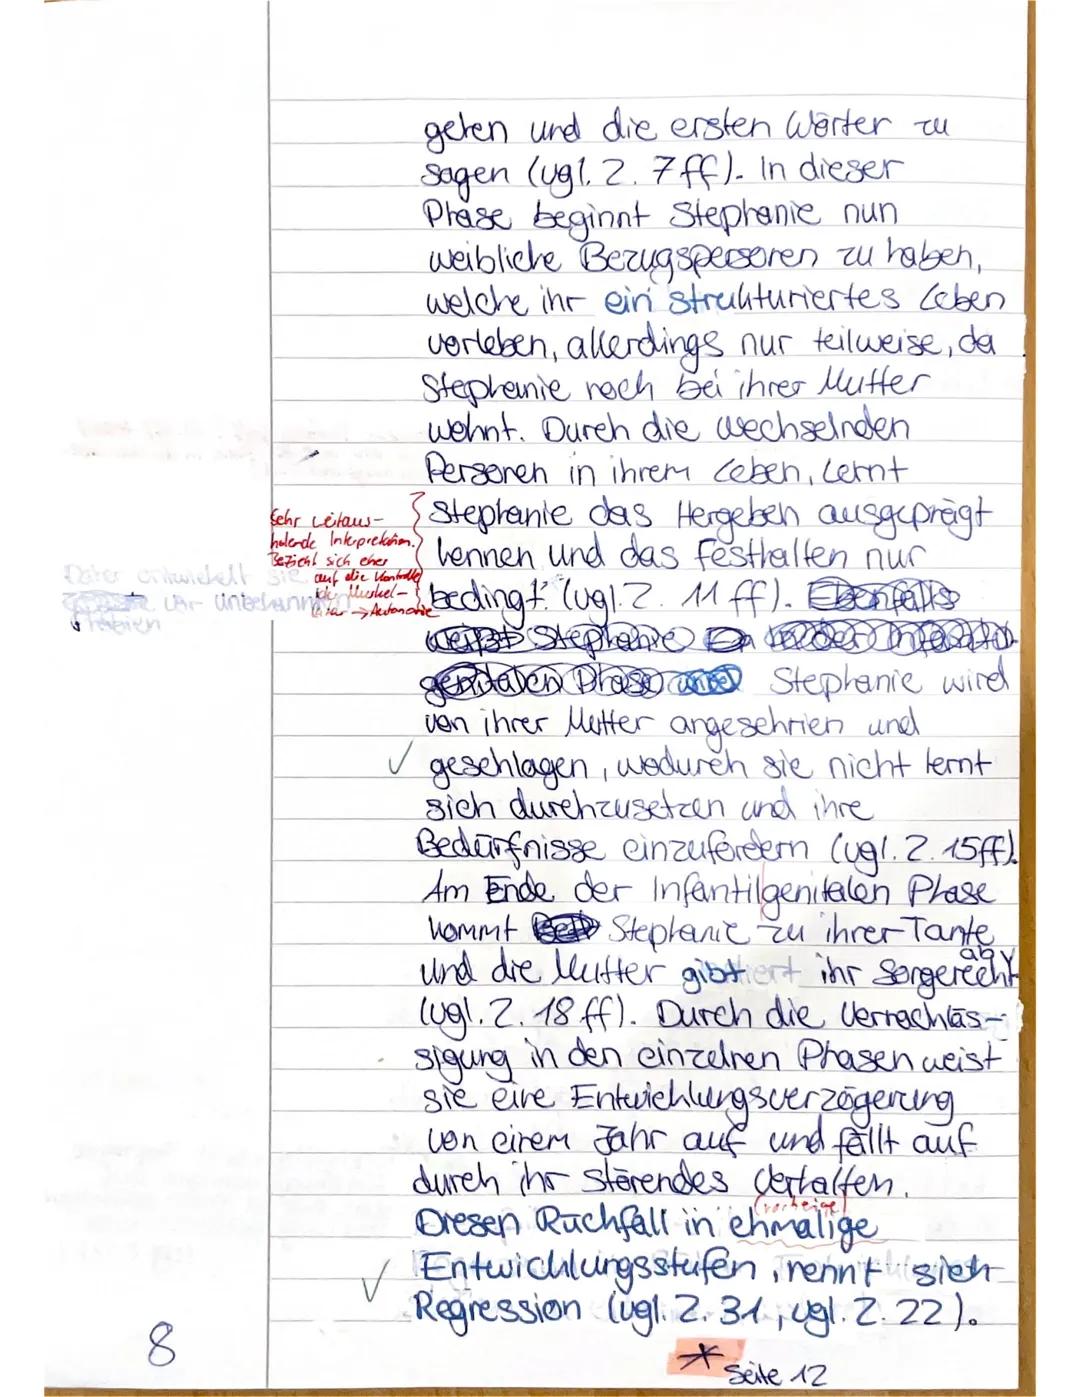 gehen und die ersten Wörter zu
sagen (vgl. Z. 7ff). In dieser
Phase beginnt Stephanie nun
weibliche Bezugspersonen zu haben,
welche ihr ein strukturiertes Leben
vorleben, allerdings nur teilweise, da
Stephanie noch bei ihrer Mutter
wohnt. Durch die wechselnden
Personen in ihrem Leben, lernt
Stephanie das Hergeben ausgeprägt
kennen und das Festhalten nur
bedingt. (vgl. Z. 11ff). Ebenfalls
weist Stephanie in der infantil-
genitalen Phase Stephanie wird
von ihrer Mutter angeschrien und
geschlagen, wodurch sie nicht lernt
sich durchzusetzen und ihre
Bedürfnisse einzufordern (vgl. Z. 15ff).
Am Ende der Infantilgenitalen Phase
kommt Stephanie zu ihrer Tante
und die Mutter gibt ihr Sorgerecht ab
(vgl. Z. 18ff). Durch die Vernachläs-
sigung in den einzelnen Phasen weist
sie eine Entwicklungsverzögerung
von einem Jahr auf und fällt auf
durch ihr störendes Verhalten.
(vorherige)
Diesen Rückfall in ehmalige
Entwicklungsstufen, nennt sich
Regression (vgl. Z. 31, vgl. Z. 22).
* Seite 12
Sehr weitaus-
holende Interpretation.
Bezieht sich eher
auf die Kontrolle
der Muskel-
→ Autonomie
Daher entwickelt sie
vor unbekannten
8